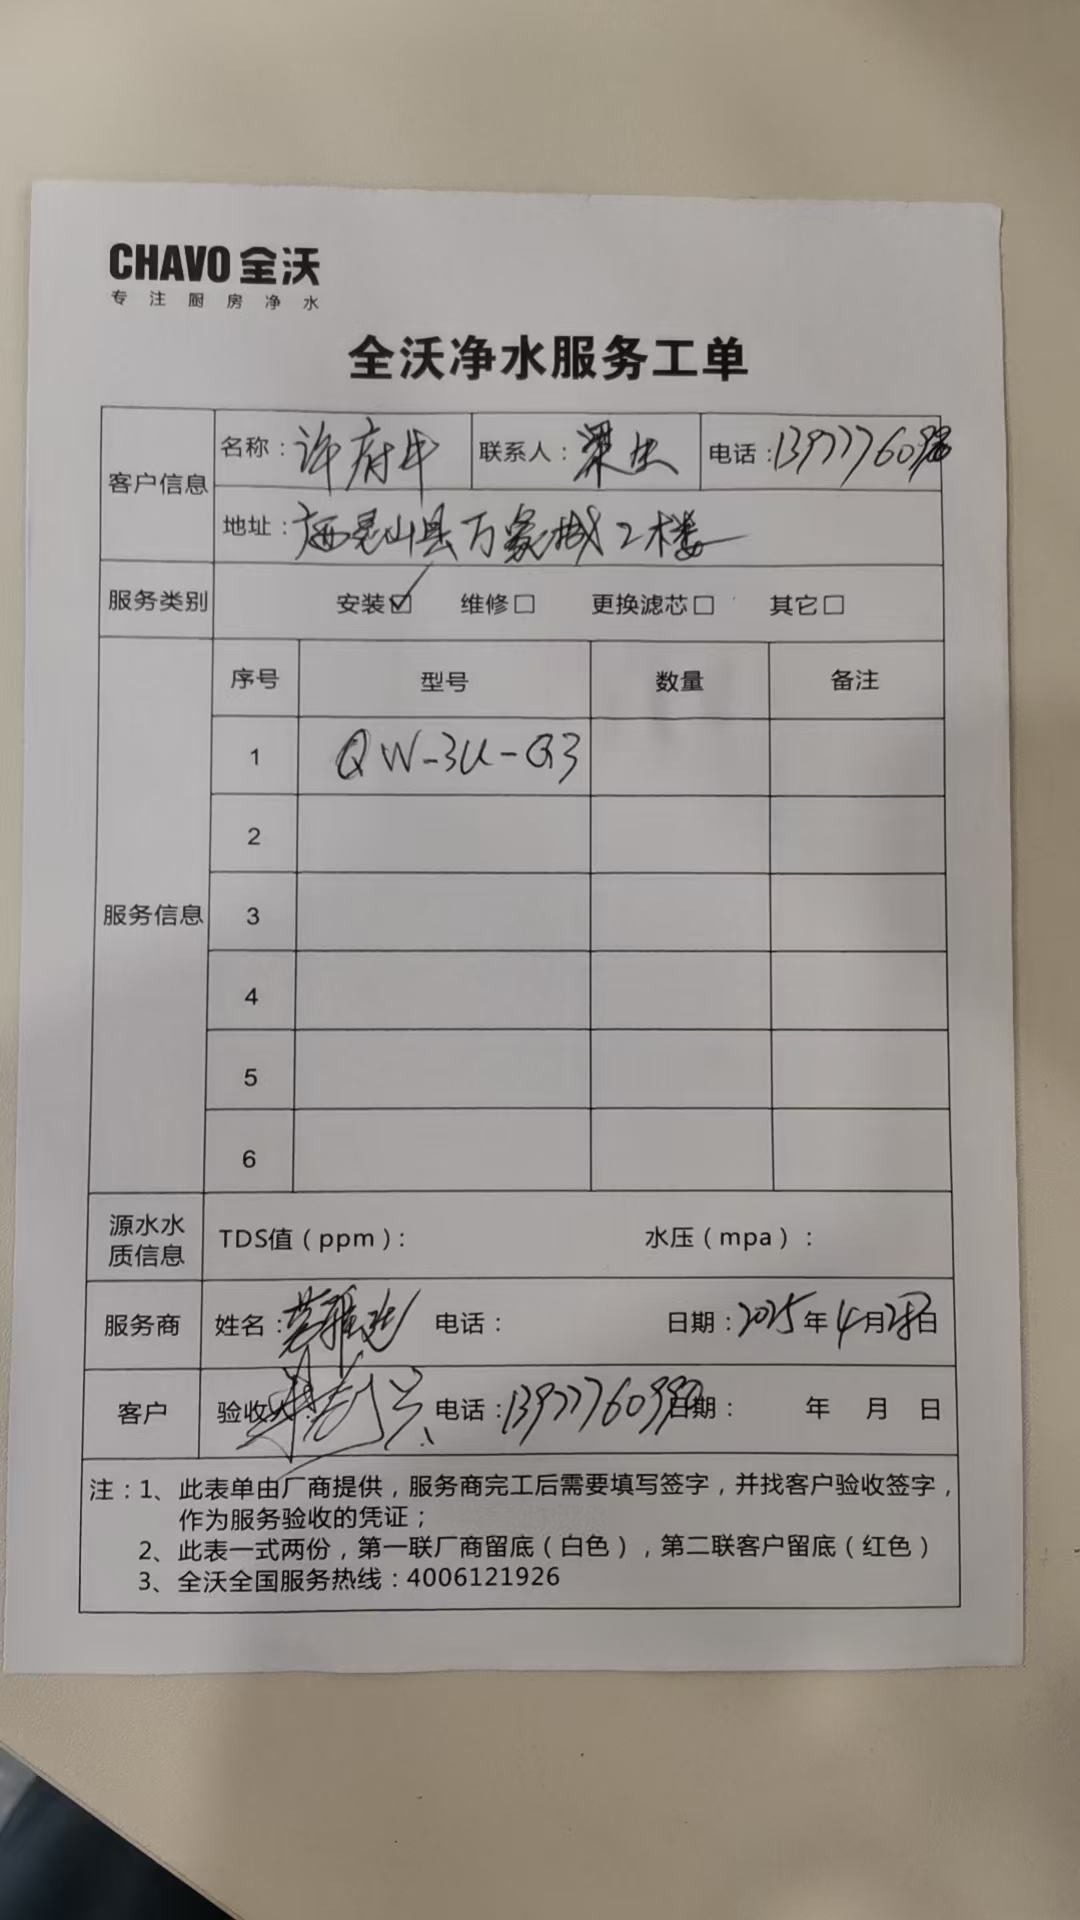 CHAVO 全沃
专注厨房净水
全沃净水服务工单
客户信息
名称：许府牛 联系人：梁 电话：
地址：广西灵山县万象城2楼
服务类别 安装☑ 维修□ 更换滤芯□ 其它□
服务信息
序号 型号 数量 备注
1 QW-3U-G3
2
3
4
5
6
源水水质信息 TDS值（ppm）： 水压（mpa）：
服务商 姓名： 电话： 日期：2025年4月28日
客户 验收人： 电话： 日期： 年 月 日
注：1、此表单由厂商提供，服务商完工后需要填写签字，并找客户验收签字，
作为服务验收的凭证；
2、此表一式两份，第一联厂商留底（白色），第二联客户留底（红色）
3、全沃全国服务热线：4006121926